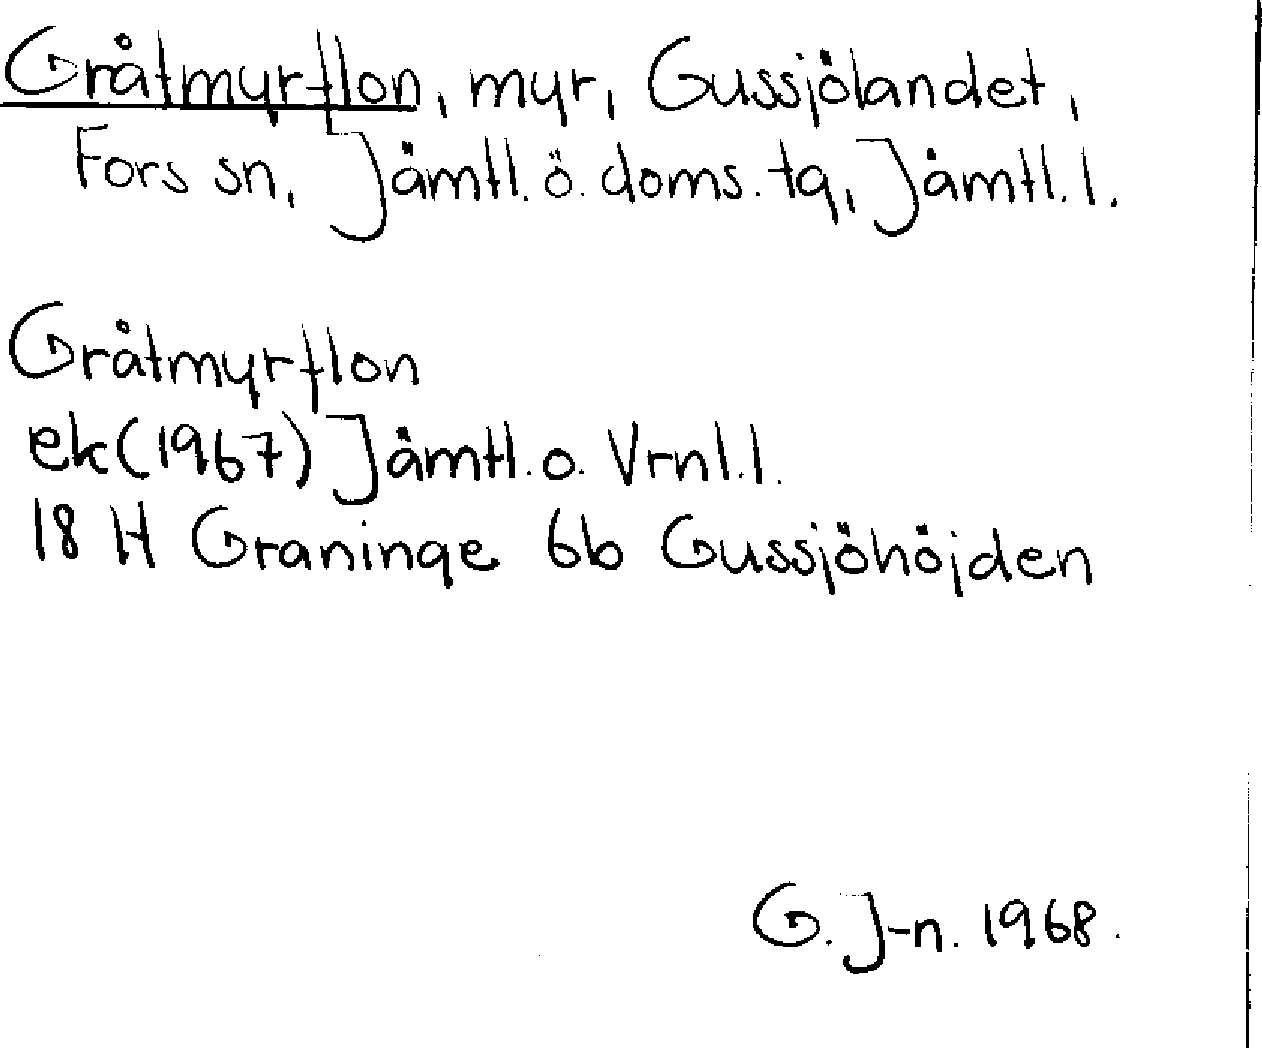 Gråtmyrflon, myr, Gussjölandet,
Fors sn, Jämtl. ö. doms. tg, Jämtl. l.
Gråtmyrflon
ek (1967) Jämtl. o. Vrnl. l.
18 H Graninge 6b Gussjöhöjden
G. J-n. 1968.